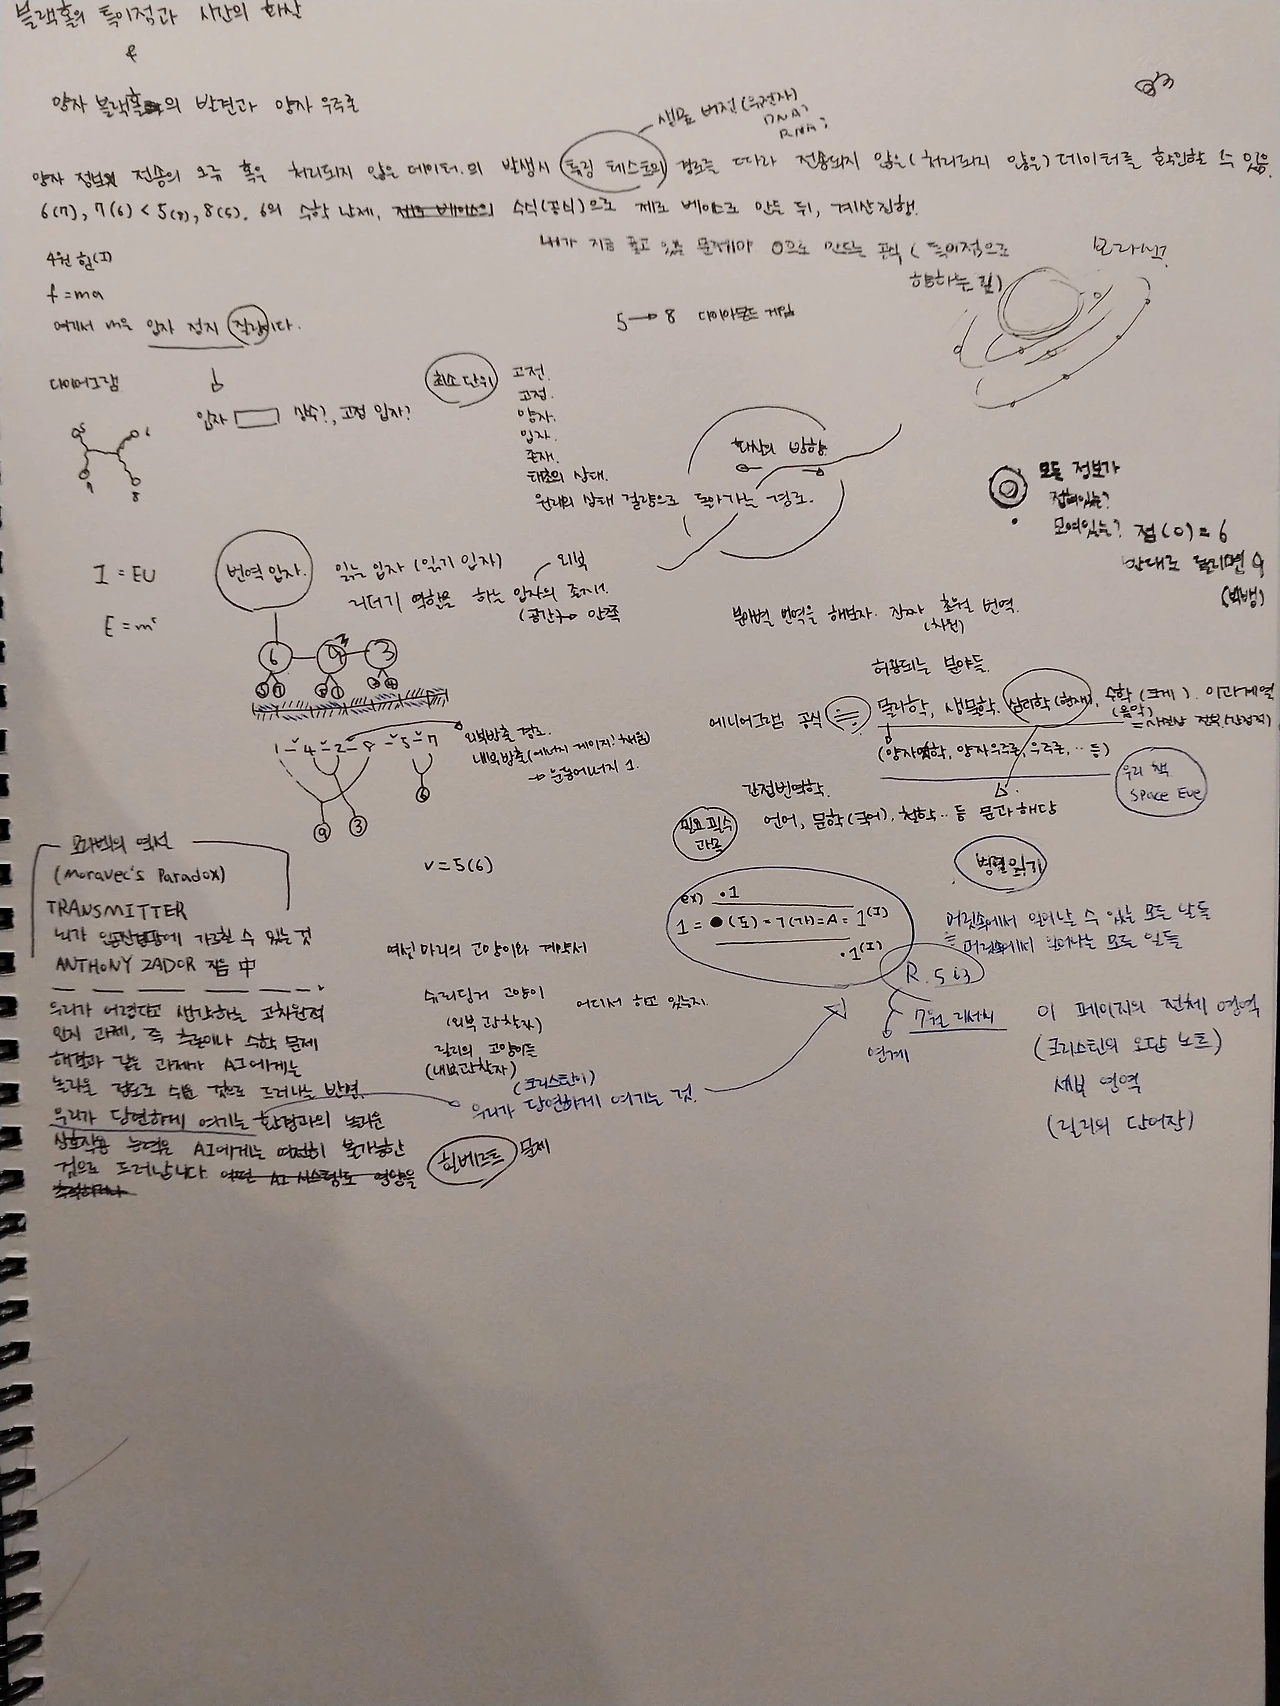 블랙홀의 특이점과 시간의 화살
&
양자 블랙홀의 발견과 양자 우주론
샘플 버전(유전자)
DNA,
RNA,
양자 정보 전송의 오류 혹은 처리되지 않은 데이터의 발생시 특정 테스트의 경로를 따라 전송되지 않은(처리되지 않은) 데이터를 확인할 수 있음.
6(7), 7(6) < 5(8), 8(5). 6의 수학 난제, 제로 베이스의 수식(공식)으로 제로 베이스로 만든 뒤, 계산진행.
내가 지금 풀고 있는 문제야 0으로 만드는 공식 (특이점으로
향하는 길)
4원 힘(I)
f = ma
여기서 m은 입자 정지 질량이다.
5 → 8 다이아몬드 게임
다이어그램
입자 상수?, 고정 입자?
5 6
9 8
최소 단위
고전.
고정.
양자.
입자.
존재.
태초의 상태.
원래의 상태 결량으로 돌아가는 경로.
화살의 방향
모든 정보가
접혀있는?
모여있는? 점(0) = 6
반대로 돌리면 9
(빅뱅)
I = EU
E = m
번역 입자.
읽는 입자 (읽기 입자)
외부
리더기 역할을 하는 입자의 존재.
(공간) 안쪽
분야별 번역을 해보자. 진짜 초월 번역.
(차원)
허용되는 분야들.
에니어그램 공식 ≒ 물리학, 생물학, 심리학(현재), 수학(크게). 이과계열
(음악)
(양자역학, 양자우주론, 우주론, .. 등)
우리 책
Space Eve
간접번역학.
필요 필수
과목
언어, 문학(국어), 철학.. 등 문과 해당
6 9 3
1 - 4 - 2 - 8 - 5 - 7
외부방출 경로.
내부방출(에너지 게이지? 채움)
→ 운동에너지 1.
9 3 6
v = 5(6)
모라벡의 역설
(Moravec's Paradox)
TRANSMITTER
뇌가 인공신경망에 가르칠 수 있는 것
ANTHONY ZADOR 지음 中
우리가 어렵다고 생각하는 고차원적
인지 과제, 즉 추론이나 수학 문제
해결과 같은 과제가 AI에게는
놀라울 정도로 쉬운 것으로 드러나는 반면.
우리가 당연하게 여기는 환경과의 놀라운
상호작용 능력은 AI에게는 여전히 불가능한
것으로 드러납니다. 어떤 AI 시스템도 영향을
여섯 마리의 고양이와 계약서
슈뢰딩거 고양이
(외부 관찰자)
어디서 하고 있는지.
릴리의 고양이들
(내부관찰자)
(크리스틴이)
우리가 당연하게 여기는 것.
힐베르트 문제
ex) .1
1 = ●(도) = ㄱ(가) = A = 1(I)
.1(I)
병렬 읽기
머릿속에서 일어날 수 있는 모든 날들
머릿속에서 일어나는 모든 일들
R. 5 is
7월 리서치
연계
이 페이지의 전체 영역
(크리스틴의 오답 노트)
세부 영역
(릴리의 단어장)